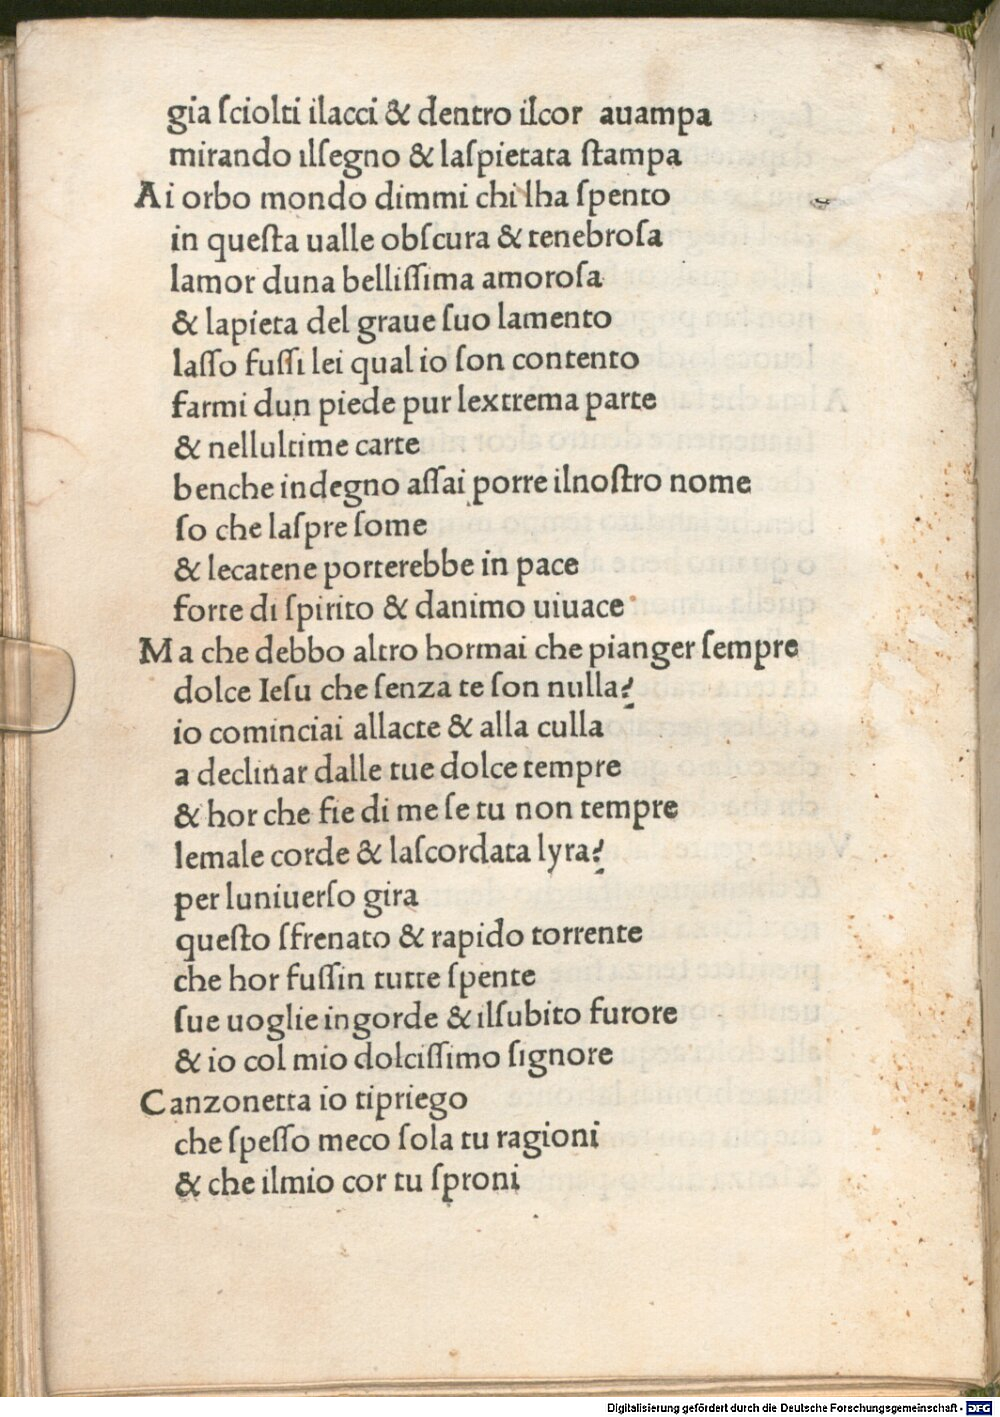 gia ſciolti ilacci & dentro ilcor auampa
mirando ilſegno & laſpietata ſtampa
Ai orbo mondo dimmi chi lha ſpento
in queſta ualle obſcura & tenebroſa
lamor duna belliſſima amoroſa
& lapieta del graue ſuo lamento
laſſo fuſſi lei qual io ſon contento
farmi dun piede pur lextrema parte
& nellultime carte
benche indegno aſſai porre ilnoſtro nome
ſo che laſpre ſome
& lecatene porterebbe in pace
forte di ſpirito & danimo uiuace
Ma che debbo altro hormai che pianger ſempre
dolce Ieſu che ſenza te ſon nulla?
io cominciai allacte & alla culla
a declinar dalle tue dolce tempre
& hor che fie di me ſe tu non tempre
lemale corde & laſcordata lyra?
per luniuerſo gira
queſto ſfrenato & rapido torrente
che hor fuſſin tutte ſpente
ſue uoglie ingorde & ilſubito furore
& io col mio dolciſſimo ſignore
Canzonetta io tipriego
che ſpeſſo meco ſola tu ragioni
& che ilmio cor tu ſproni
Digitalisierung gefördert durch die Deutsche Forschungsgemeinschaft - DFG